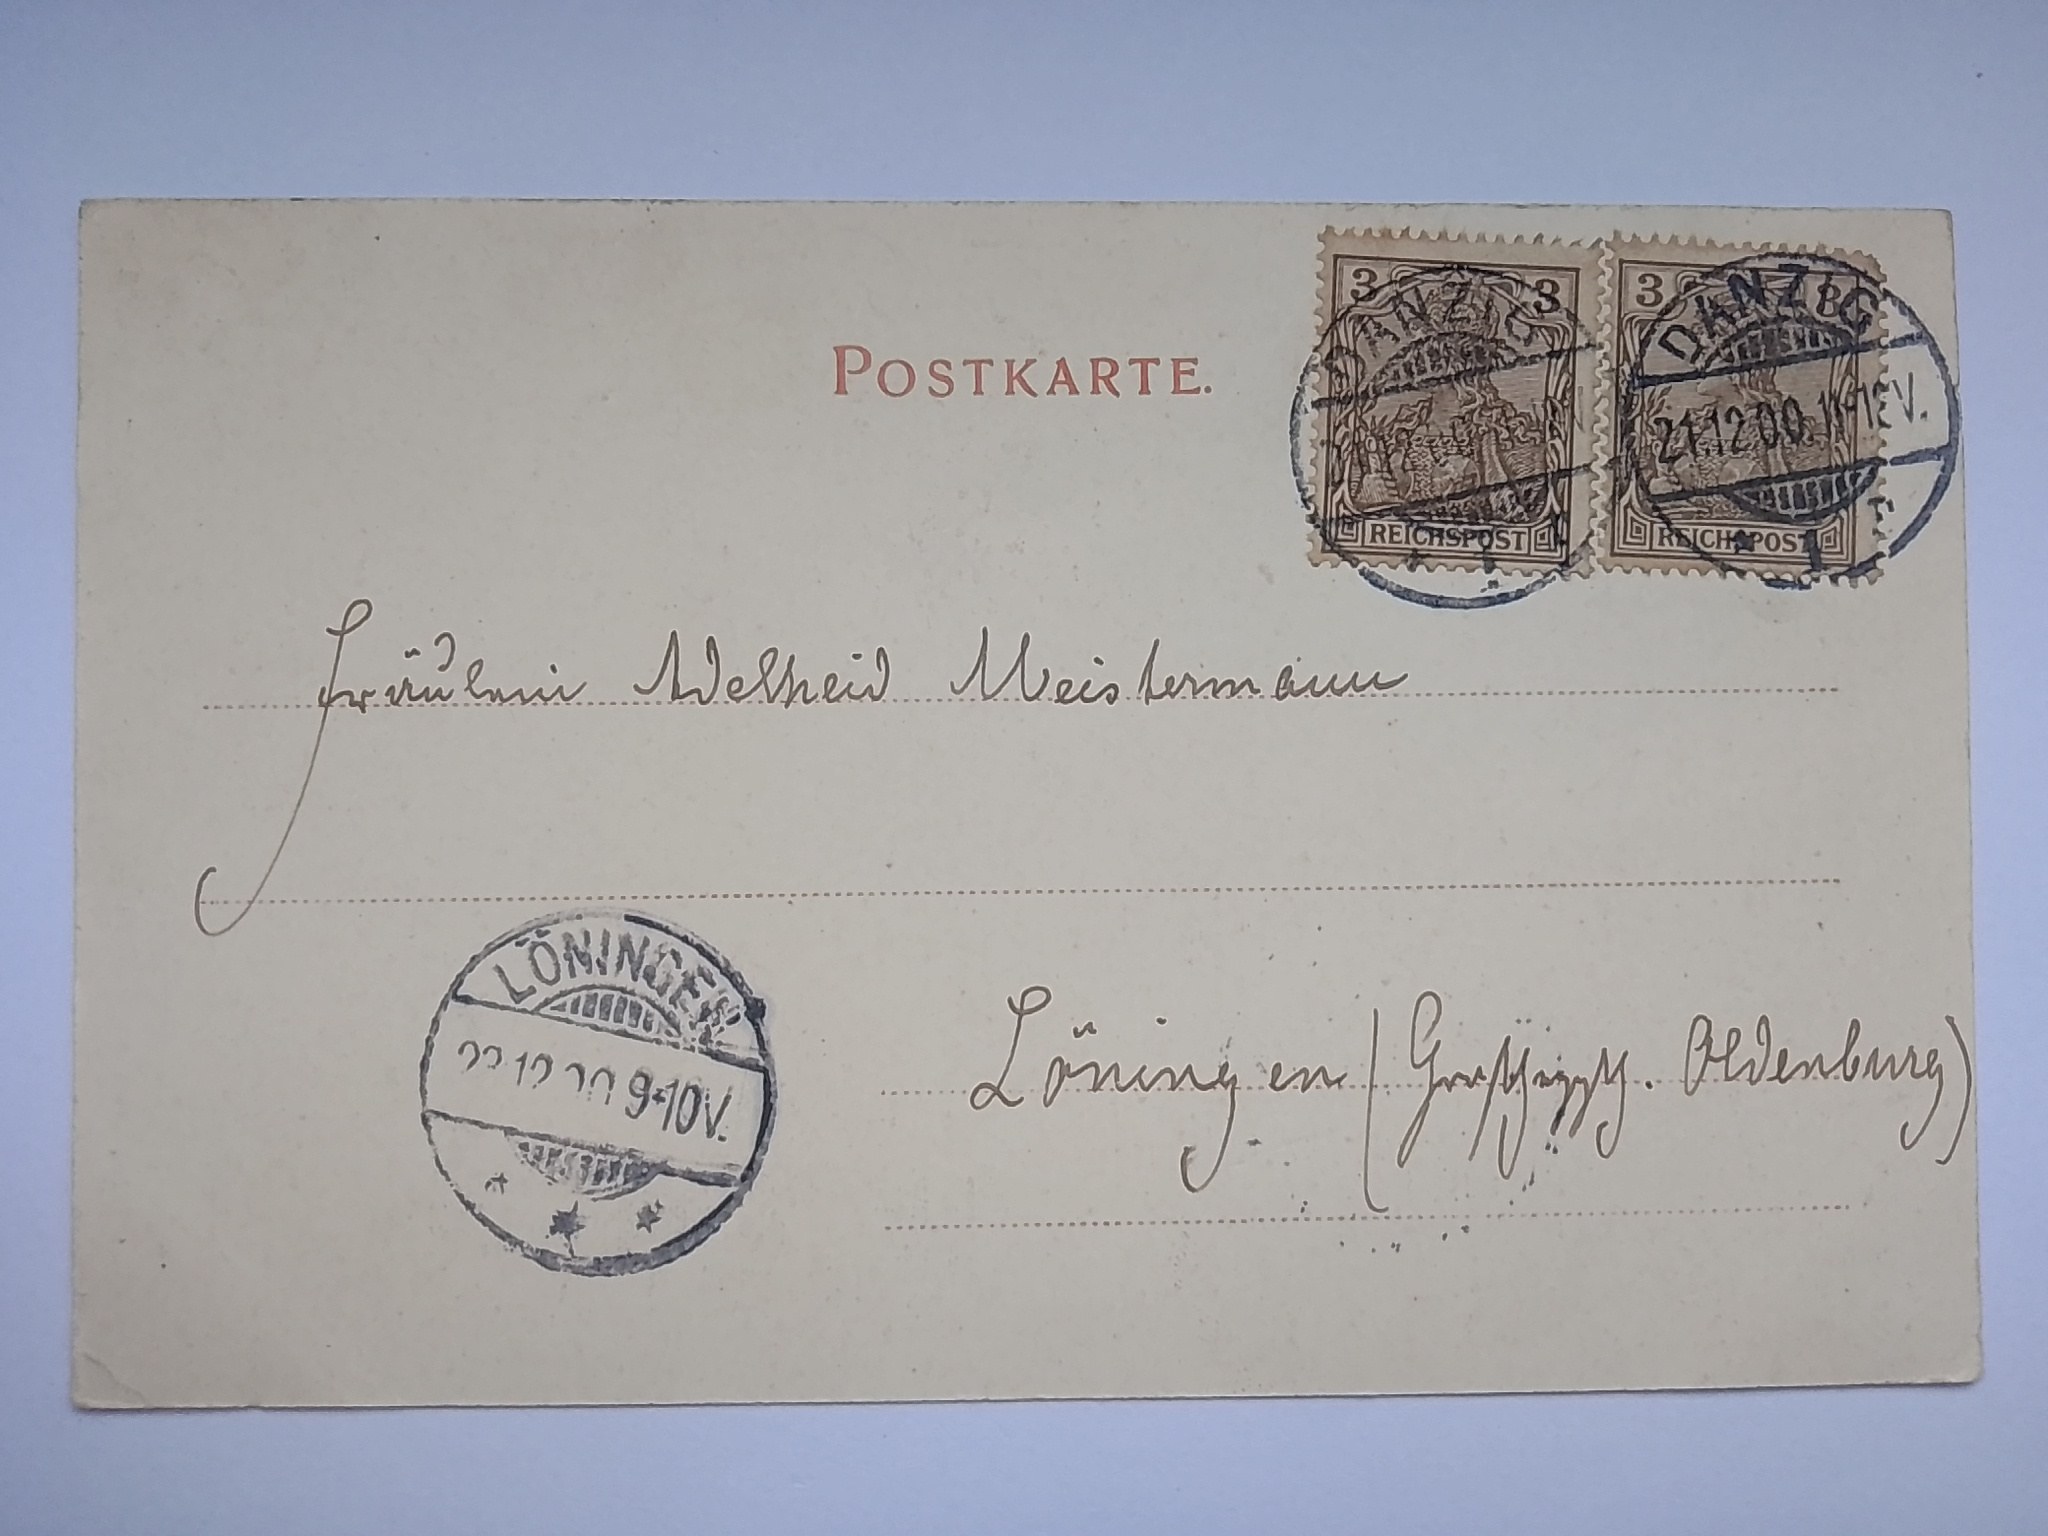 POSTKARTE.
3 3 3 3
REICHSPOST REICHSPOST
DANZIG DANZIG
21.12.00. 11-12V.
* 1 * 1
Fräulein Adelheid Meistermann
LÖNINGEN
12 9-10V.
Löningen (Großherzgth. Oldenburg)